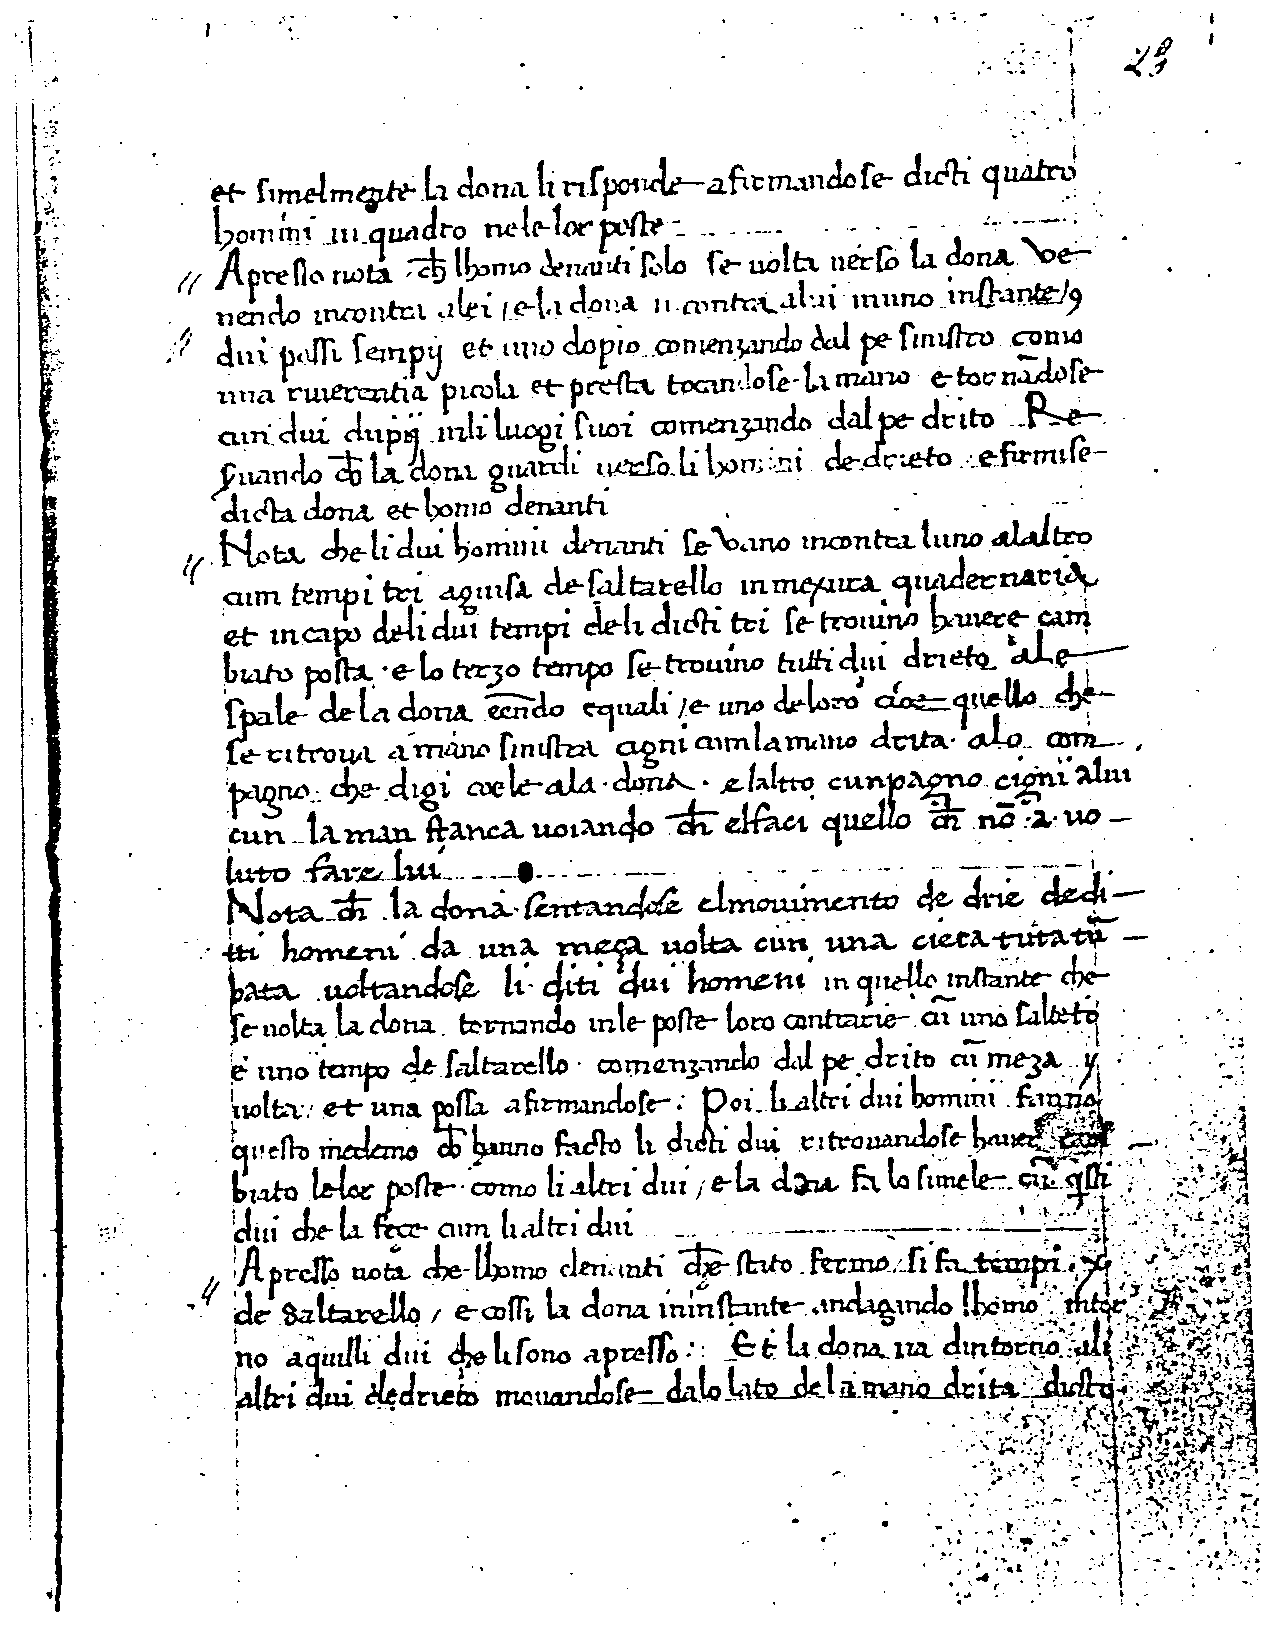 23
et simelmente la dona li risponde afirmandose dicti quatro
homini in quadro nele lor poste
Apresso nota ch lhomo denanti solo se uolta uerso la dona Ve-
nendo incontra alei / e la dona incontra alui in uno instante /
dui passi sempij et uno dopio comenzando dal pe sinistro como
una riuerentia picola et presta tocandose la mano e tornãdose
cun dui dupij inli luogi suoi comenzando dal pe drito Re-
guando ch la dona guardi uerso li homini dedrieto e firmise
dicta dona et homo denanti
Nota che li dui homini denanti se Vano incontra luno alaltro
cum tempi tri aguisa de saltarello in mexura quadernaria
et in capo deli dui tempi deli dicti tri se trouino hauere cam
biato posta · e lo terzo tempo se trouino tutti dui drieto ale
spale de la dona eendo equali / e uno deloro cioe quello che
se ritroua a mano sinistra cigni cum la mano drita alo com
pagno che digi covele ala dona · e laltro cunpagno cigni alui
cun la man stanca uoiando ch elfaci quello ch nõ · a · uo-
luto fare lui
Nota ch la dona sentandose elmouimento de drie dedi-
tti homeni da una meça uolta cun una ciera tuta tũ-
bata uoltandose li diti dui homeni in quello instante che
se uolta la dona tornando inle poste loro contrarie cũ uno salteto
e uno tempo de saltarello · comenzando dal pe drito cũ meza
uolta / et una possa afirmandose : Poi li altri dui homini fanno
questo medemo ch hanno facto li dicti dui ritrouandose hauer cam
biato le lor poste como li altri dui / e la dona fa lo simele cũ q̃sti
dui che la fece cum li altri dui
Apresso nota che lhomo denanti che stato fermo si fa tempi
de saltarello / e cossi la dona in instante andagando lhomo intor
no aquilli dui che li sono apresso : Et la dona ua dintorno ali
altri dui dedrieto mouandose dalo lato de la mano drita dicto